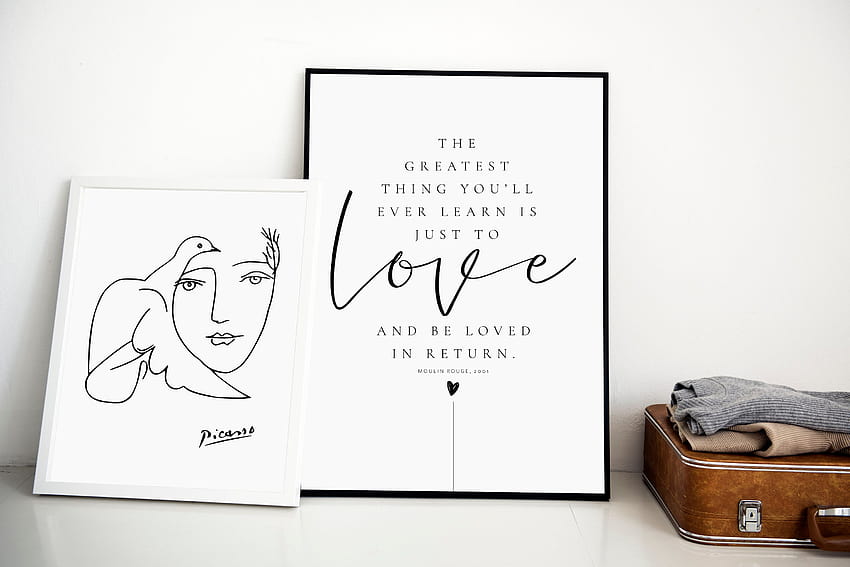 THE
GREATEST
THING YOU'LL
EVER LEARN IS
JUST TO
love
AND BE LOVED
IN RETURN.
MOULIN ROUGE, 2001
Picasso